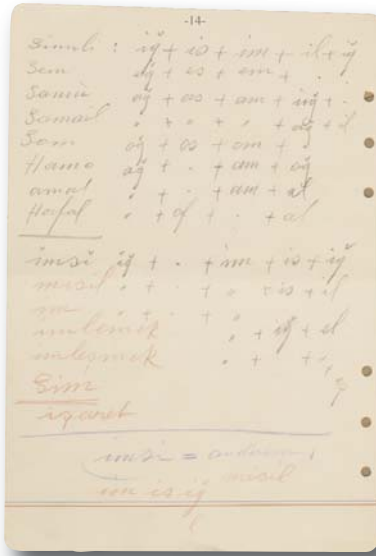 -14-
Simili : iğ + is + im + il + iğ
Sem eğ + es + em + .
Samii ağ + as + am + iğ + .
Samail " + " + " + ağ + il
Som oğ + os + om + .
Hamo ağ + . + am + oğ
amal " + . + am + al
Hafal " + af + . + al
imsi iğ + . + im + is + iğ
misil " + . + " + is + il
im " + . + "
imlemek " + iğ + el
imleşmek " + " +
Sim
işaret
imsi =
im is iğ misil